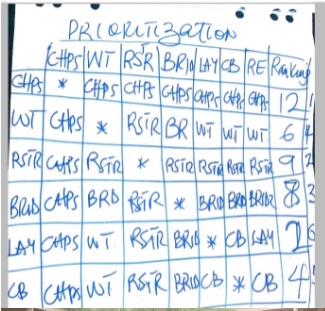 PRIORITIZATION
CHPS WT RSTR BRID LAY CB RE Ranking
CHPS * CHPS CHPS CHPS CHPS CHPS CHPS 12 1
WT CHPS * RSTR BR WT WT WT 6 4
RSTR CHPS RSTR * RSTR RSTR RSTR RSTR 9 2
BRID CHPS BRD RSTR * BRID BRD BRIDR 8 3
LAY CHPS WT RSTR BRID * CB LAY 2
CB CHPS WT RSTR BRID CB * CB 4